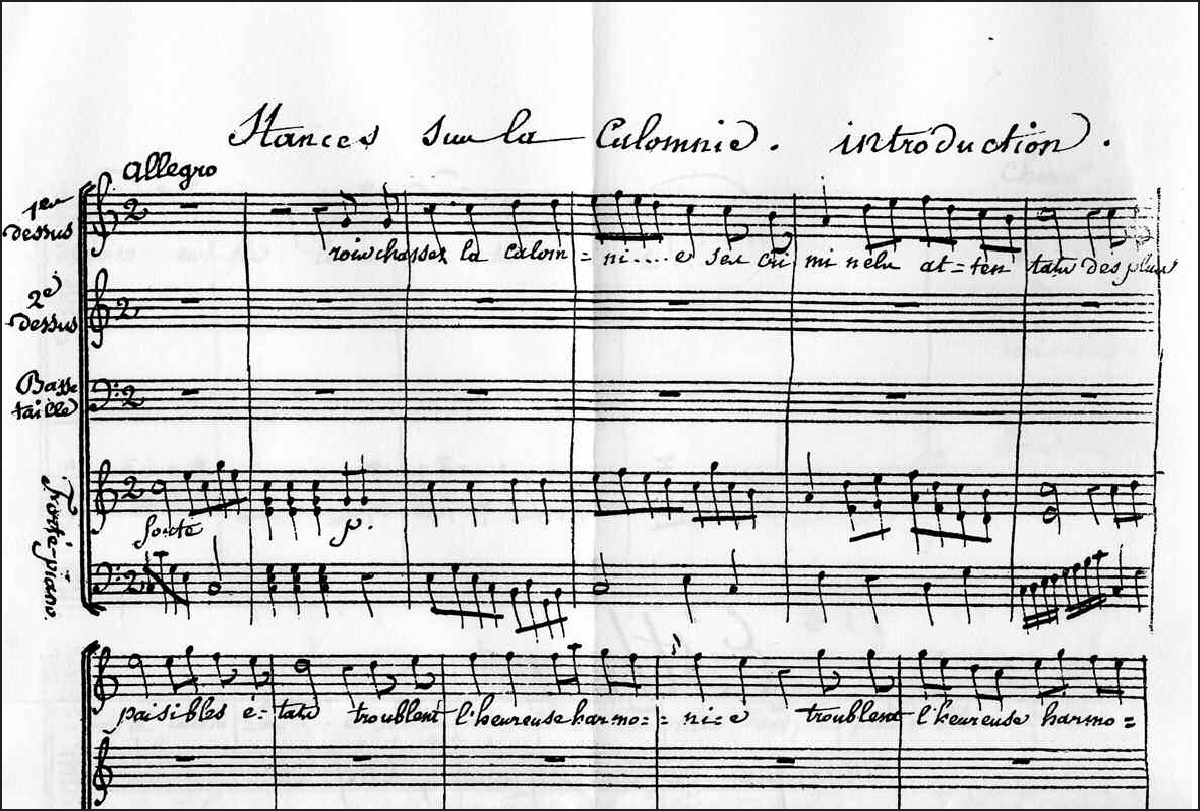 Stances sur la Calomnie. introduction.
allegro
1er dessus
roix chassez la calom = ni.... e ses cri mi nels at = ten tats des plus
2e dessus
Basse taille
Forté-piano.
forte p.
paisibles é = tats troublent l'heureuse harmo = = ni = e troublent l'heureuse harmo =